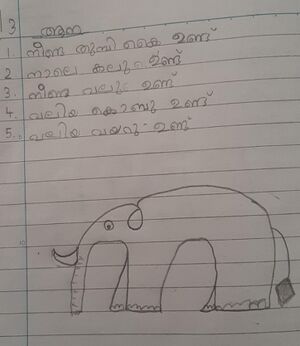 13 ആന
1. നീണ്ട തുമ്പി കൈ ഉണ്ട്
2 നാലെ കലു ഉണ്ട്
3. നീണ്ട വലും ഉണ്ട്
4. വലിയ കൊബു ഉണ്ട്
5. വലിയ വയറു ഉണ്ട്